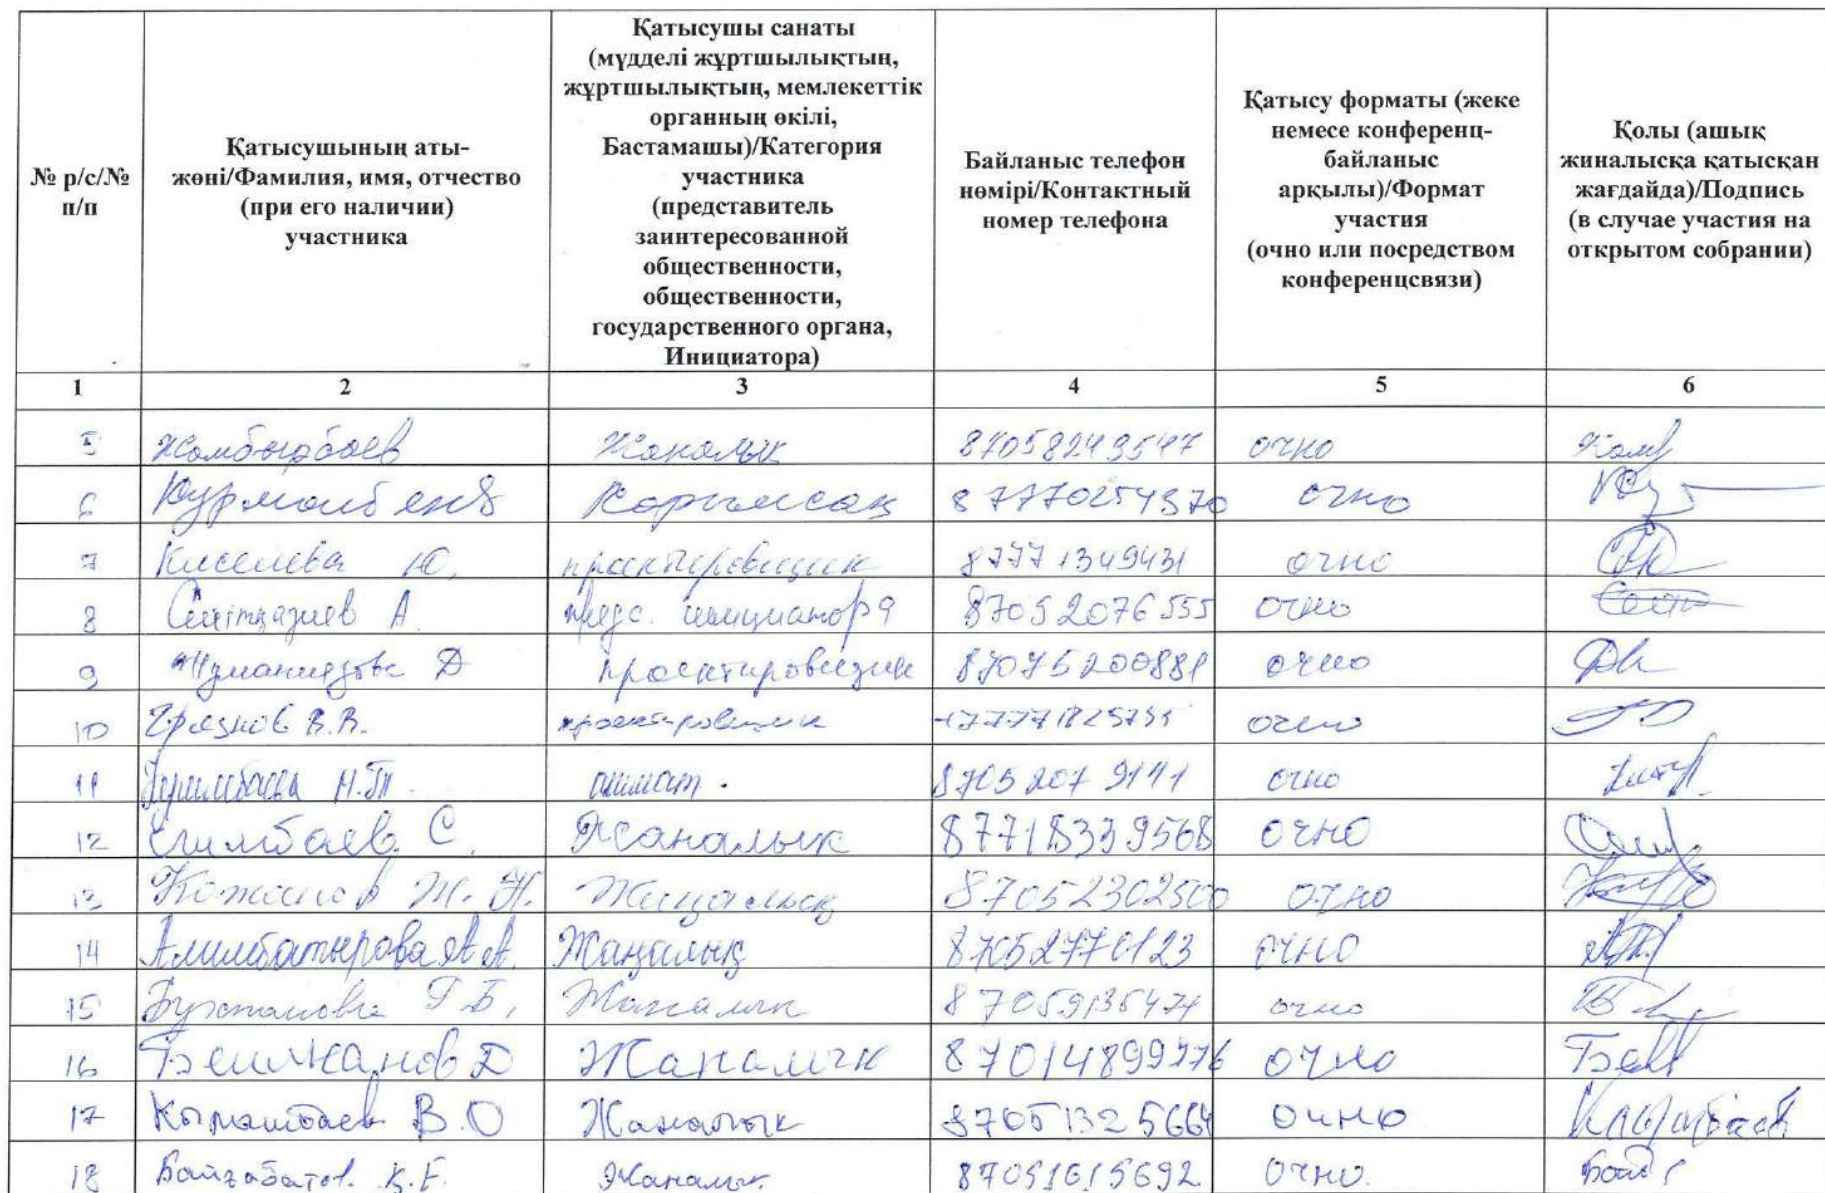 № р/с/№
п/п
Қатысушының аты-
жөні/Фамилия, имя, отчество
(при его наличии)
участника
Қатысушы санаты
(мүдделі жұртшылықтың,
жұртшылықтың, мемлекеттік
органның өкілі,
Бастамашы)/Категория
участника
(представитель
заинтересованной
общественности,
общественности,
государственного органа,
Инициатора)
Байланыс телефон
нөмірі/Контактный
номер телефона
Қатысу форматы (жеке
немесе конференц-
байланыс
арқылы)/Формат
участия
(очно или посредством
конференцсвязи)
Қолы (ашық
жиналысқа қатысқан
жағдайда)/Подпись
(в случае участия на
открытом собрании)
1 2 3 4 5 6
5 Жаналык очно
6 87770254370 очно
7 Киселева Ю. проектировщик 87771349431 очно
8 А. предс. инициатора 87052076555 очно
9 Д проектировщик 87075200881 очно
10 Грязнов В.В. проектировщик очно
11 Н.Т. акимат. 8705 207 9141 очно
12 С. Жаналык 87718339568 очно
13 Кожанов Ж. Жаңалық 87052302500 очно
14 Алимбатырова А.А. Жаңалық 87052770123 очно
15 Г.Б. Жаналык 87059135471 очно
16 Бейжанов Д Жаналык 87014899776 очно
17 В.О Жаналык 87051325664 очно
18 Қ.Е. Жаналык 87051615692 очно.